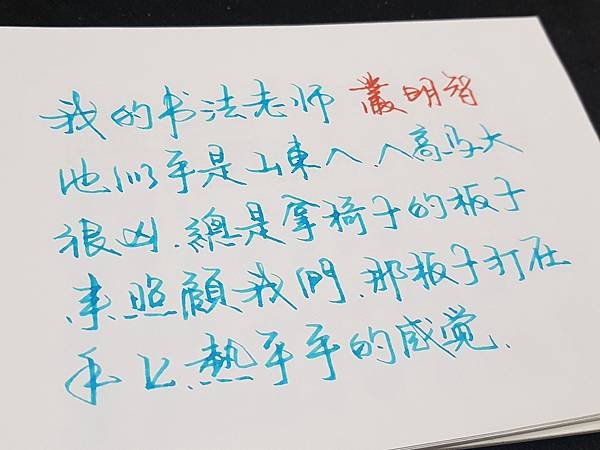 我的书法老师 叢明智
他似乎是山東人,人高马大
很凶.總是拿椅子的板子
来照顧我們.那板子打在
手上.熱乎乎的感觉.